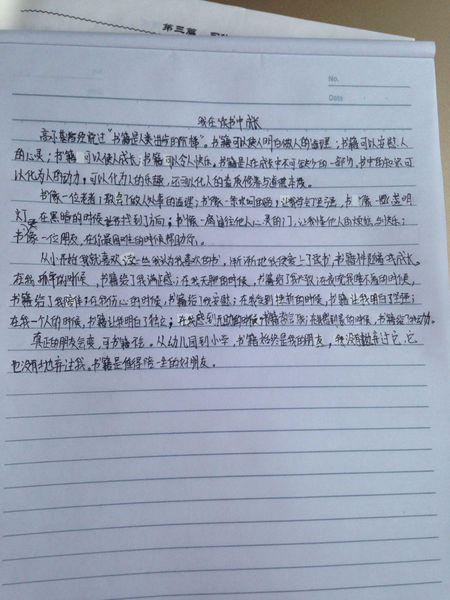 第三篇
No.
Date
我在读书中成长
高尔基曾经说过“书籍是人类进步的阶梯”。书籍可以使人明白做人的道理；书籍可以
人的心灵；书籍可以使人成长；书籍可以令人快乐。书籍是人在成长中不可缺少的一部分，书中的知识可
以化为人的动力，可以化为人的乐趣，还可以化人的素质修养与道德
书像一位老者，教会了做人处事的道理；书像一朵，让我学会了坚强；书像一盏明
灯，在黑暗的时候找到了方向；书像一扇通往他人心灵的门，让我懂他人的烦恼与快乐；
书像一位朋友，在你最困难的时候帮助你。
从小开始我就喜欢我喜欢的书，渐渐地我便爱上了读书，书籍伴随着我成长。
在我的时候，书籍给了我满足感；在我无聊的时候，书籍给了我在夜晚我睡不着的时候，
书籍给了我陪伴；在我伤心的时候，书籍给了我安慰；在我受到挫折的时候，书籍让我明白了坚强；
在我一个人的时候，书籍让我明白了独立；在我感到无助的时候，书籍的时候，书籍给了我动力。
真正的朋友会变，可书籍不会。从幼儿园到小学，书籍始终是我的朋友，我没有抛弃过它，它
也没有抛弃过我。书籍是值得陪一生的好朋友。